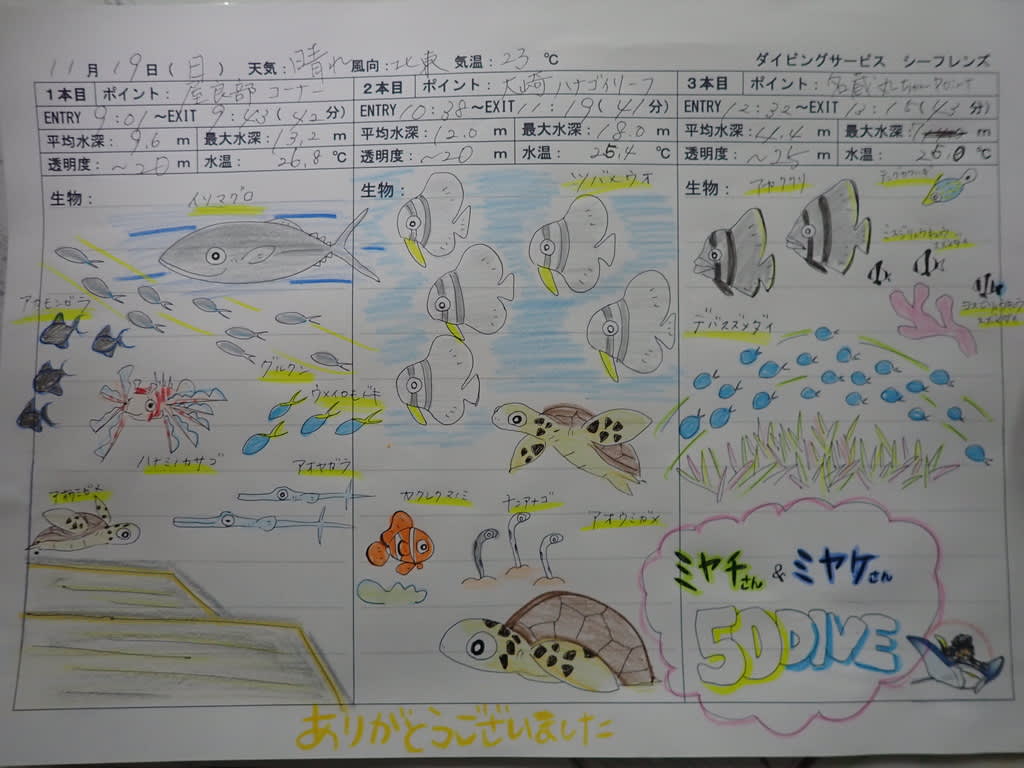 11月19日(日) 天気:晴れ 風向:北東 気温:23 ℃ ダイビングサービス シーフレンズ
1本目 ポイント: 屋良部コーナー
ENTRY 9:01 ~EXIT 9:43 (42分)
平均水深: 9.6 m 最大水深: 13.2 m
透明度: ~20 m 水温: 26.8 ℃
生物:
イソマグロ
アカモンガラ
グルクン
ウメイロモドキ
ハナミノカサゴ
アオヤガラ
アオウミガメ
2本目 ポイント: 大崎ハナゴイリーフ
ENTRY 10:38 ~EXIT 11:19 (41分)
平均水深: 12.0 m 最大水深: 18.0 m
透明度: ~20 m 水温: 25.4 ℃
生物:
ツバメウオ
カクレクマノミ
チンアナゴ
アオウミガメ
3本目 ポイント: 名蔵
ENTRY 12:32 ~EXIT 13:15 (43分)
平均水深: 4.4 m 最大水深: m
透明度: ~25 m 水温: 25.0 ℃
生物:
デバスズメダイ
ミヤチさん & ミヤケさん
50DIVE
ありがとうございました